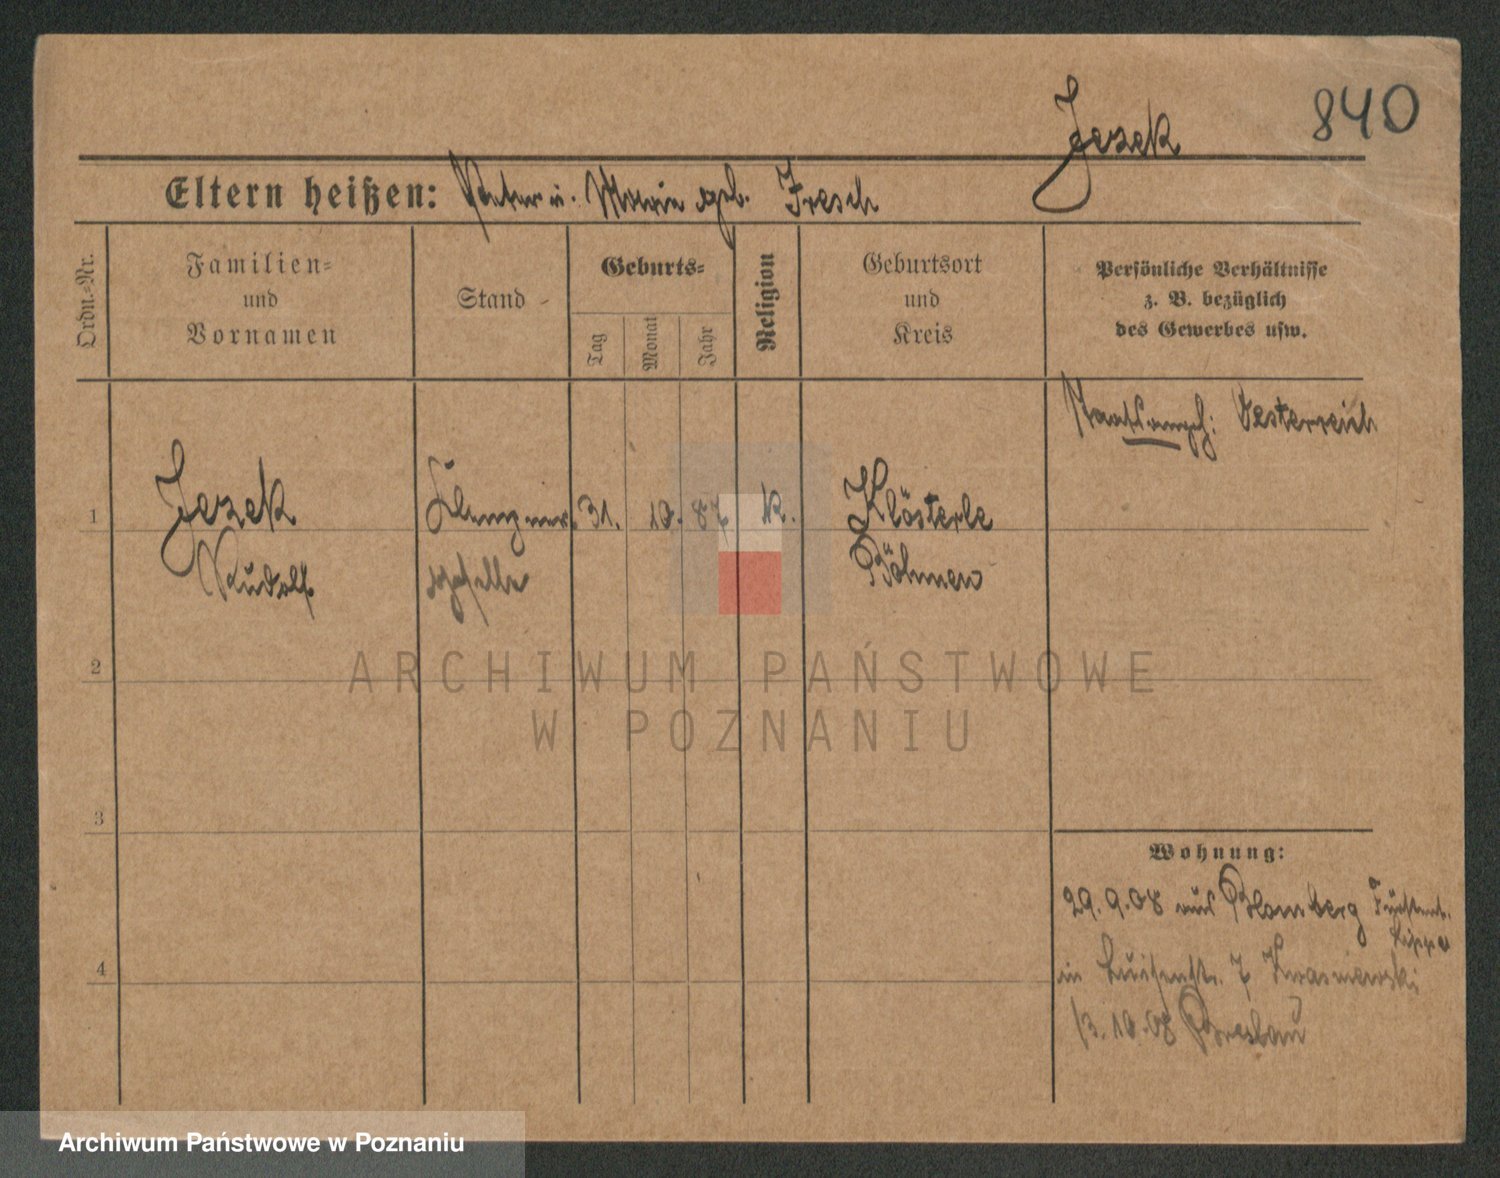 840
Jezek
Eltern heißen: Peter u. Marie geb. Fresch
Ordn.-Nr.
Familien-
und
Vornamen
Stand
Geburts-
Tag
Monat
Jahr
Religion
Geburtsort
und
Kreis
Persönliche Verhältnisse
z. B. bezüglich
des Gewerbes usw.
Staatsangeh: Oesterreich
1
Jezek
Rudolf
gehselle
31. 10. 87
k.
Klösterle
Böhmen
2
3
4
Wohnung:
29.9.08 aus Blomberg Fürstent.
Lippe
in Luisenstr. 7 Kwasniewski
/3.10.08 Breslau
ARCHIWUM PAŃSTWOWE
W POZNANIU
Archiwum Państwowe w Poznaniu